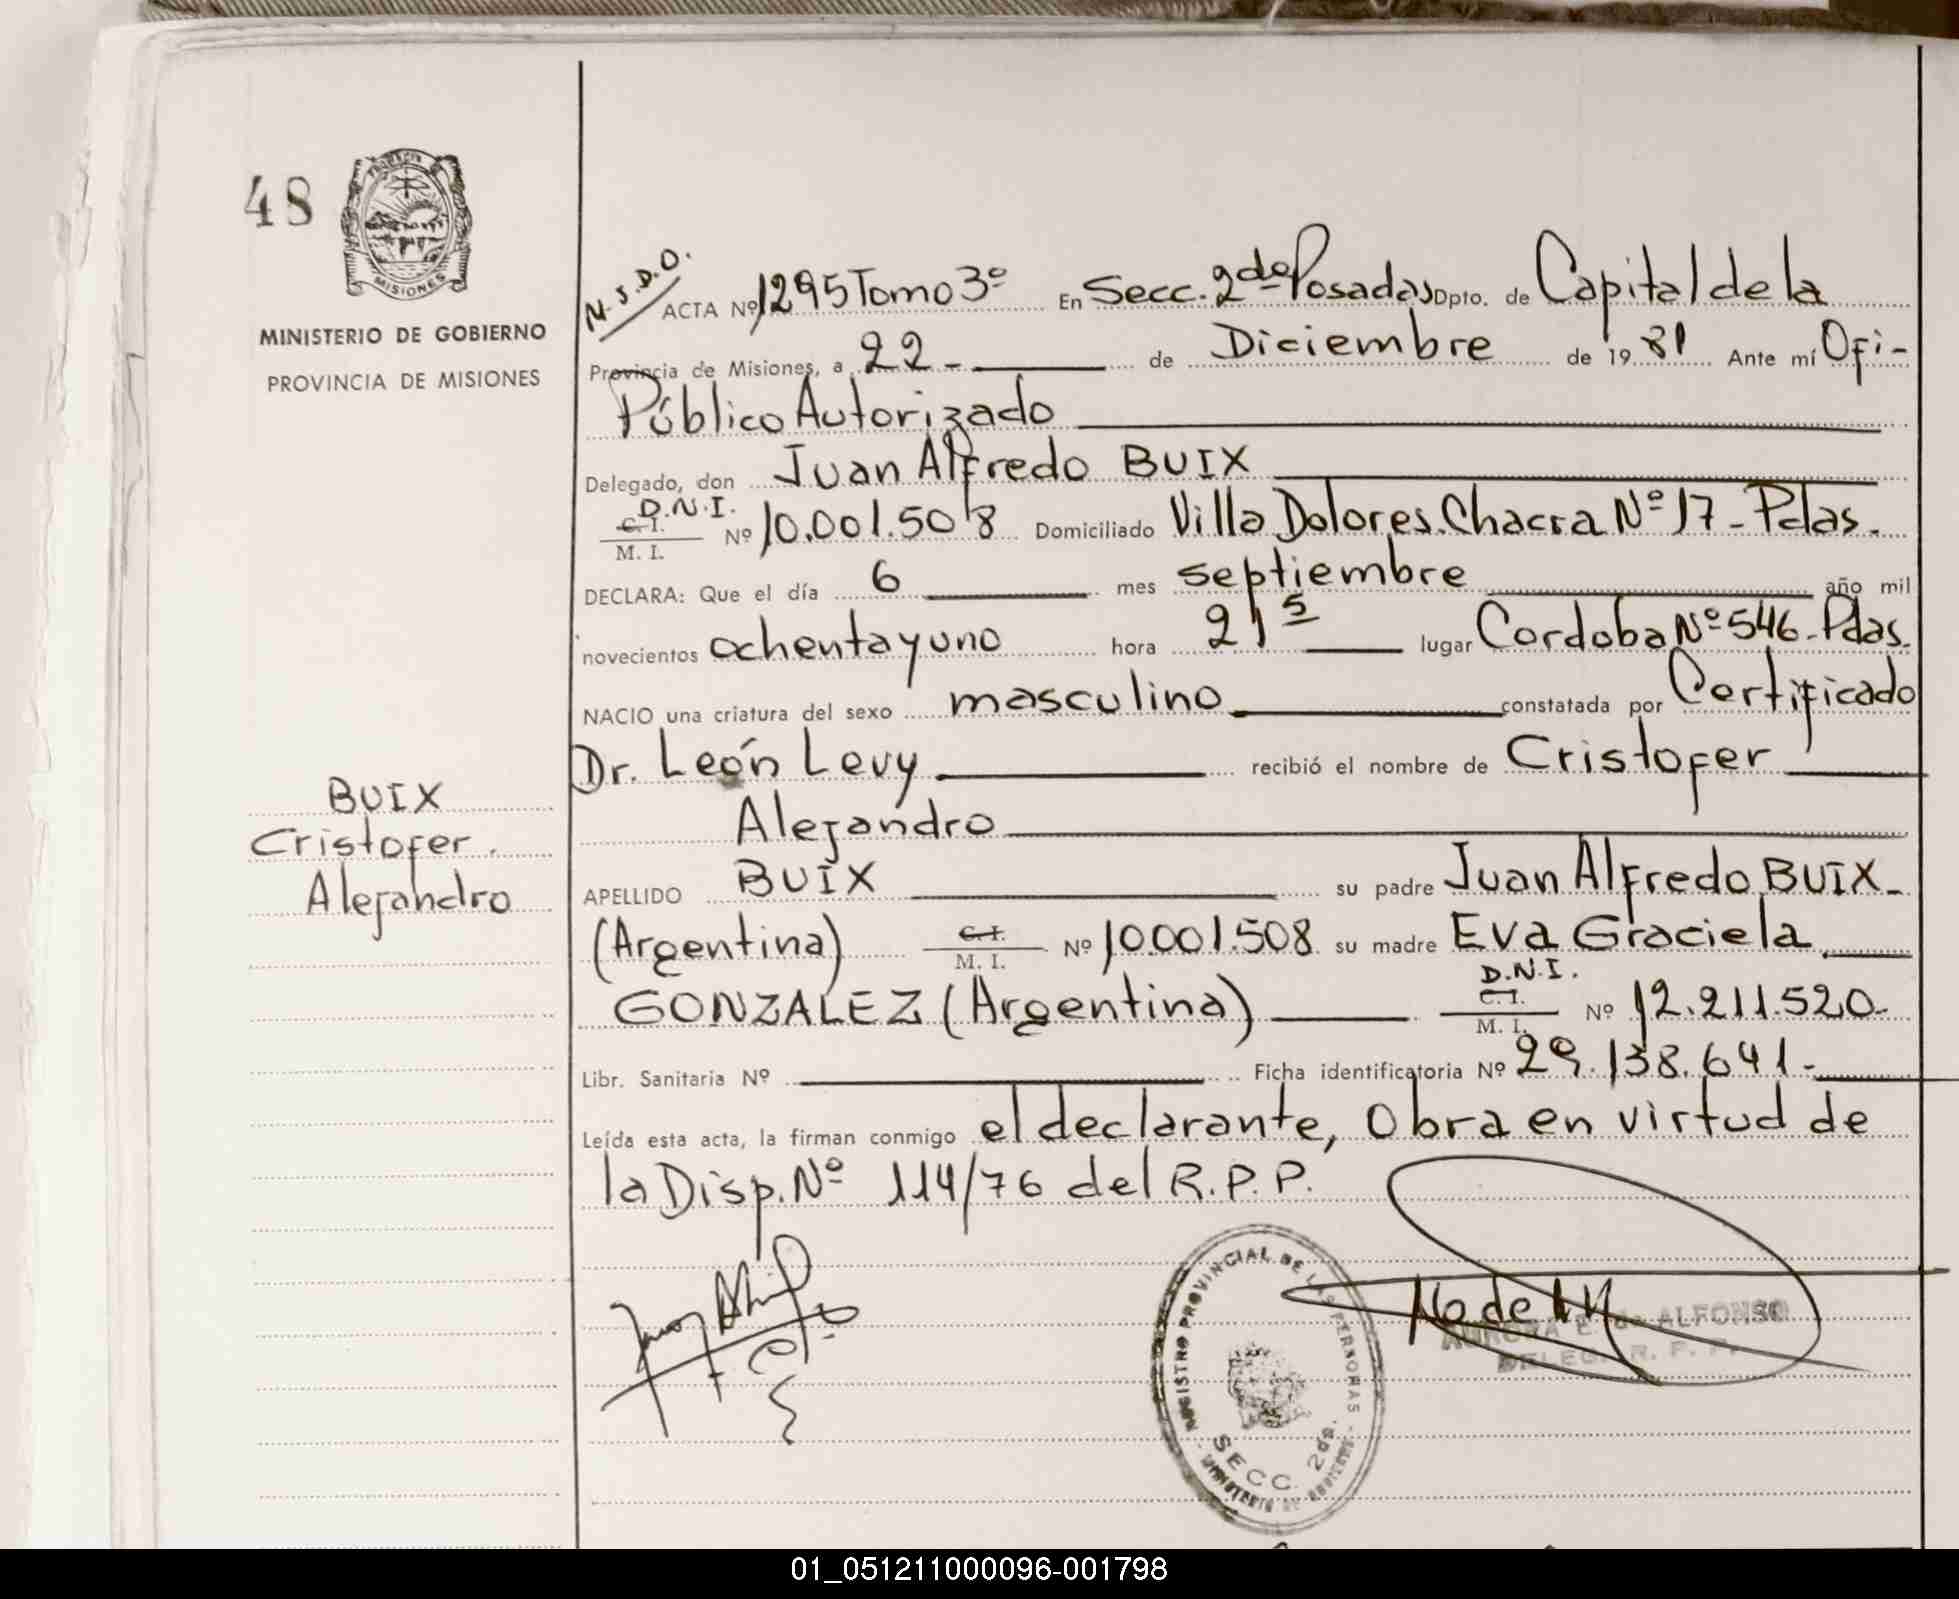 48
PROVINCIA
MISIONES
MINISTERIO DE GOBIERNO
PROVINCIA DE MISIONES
BUIX
Cristofer.
Alejandro
N.J.D.O.
ACTA Nº 1295 Tomo 3º En Secc. 2da Posadas Dpto. de Capital de la
Provincia de Misiones, a 22- de Diciembre de 19 81 Ante mí Ofi-
Público Autorizado
Delegado, don Juan Alfredo BUIX
D.N.I.
C. I.
M. I. Nº 10.001.508 Domiciliado Villa Dolores. Chacra Nº 17- Pdas.
DECLARA: Que el día 6 mes septiembre año mil
novecientos ochenta y uno hora 21 5 lugar Cordoba Nº 546- Pdas.
NACIO una criatura del sexo masculino constatada por Certificado
Dr. León Levy recibió el nombre de Cristofer
Alejandro
APELLIDO BUIX su padre Juan Alfredo BUIX-
(Argentina) C. I. M. I. Nº 10.001.508 su madre Eva Graciela
GONZALEZ (Argentina) D.N.I. C. I. M. I. Nº 12.211.520-
Libr. Sanitaria Nº Ficha identificatoria Nº 29.138.641-
Leída esta acta, la firman conmigo el declarante, Obra en virtud de
la Disp. Nº 114/76 del R.P.P.
REGISTRO PROVINCIAL DE LAS PERSONAS
SECC. 2da.
MINISTERIO DE GOBIERNO
AURORA E. de ALFONSO
DELEG. R. P. P.
01_051211000096-001798